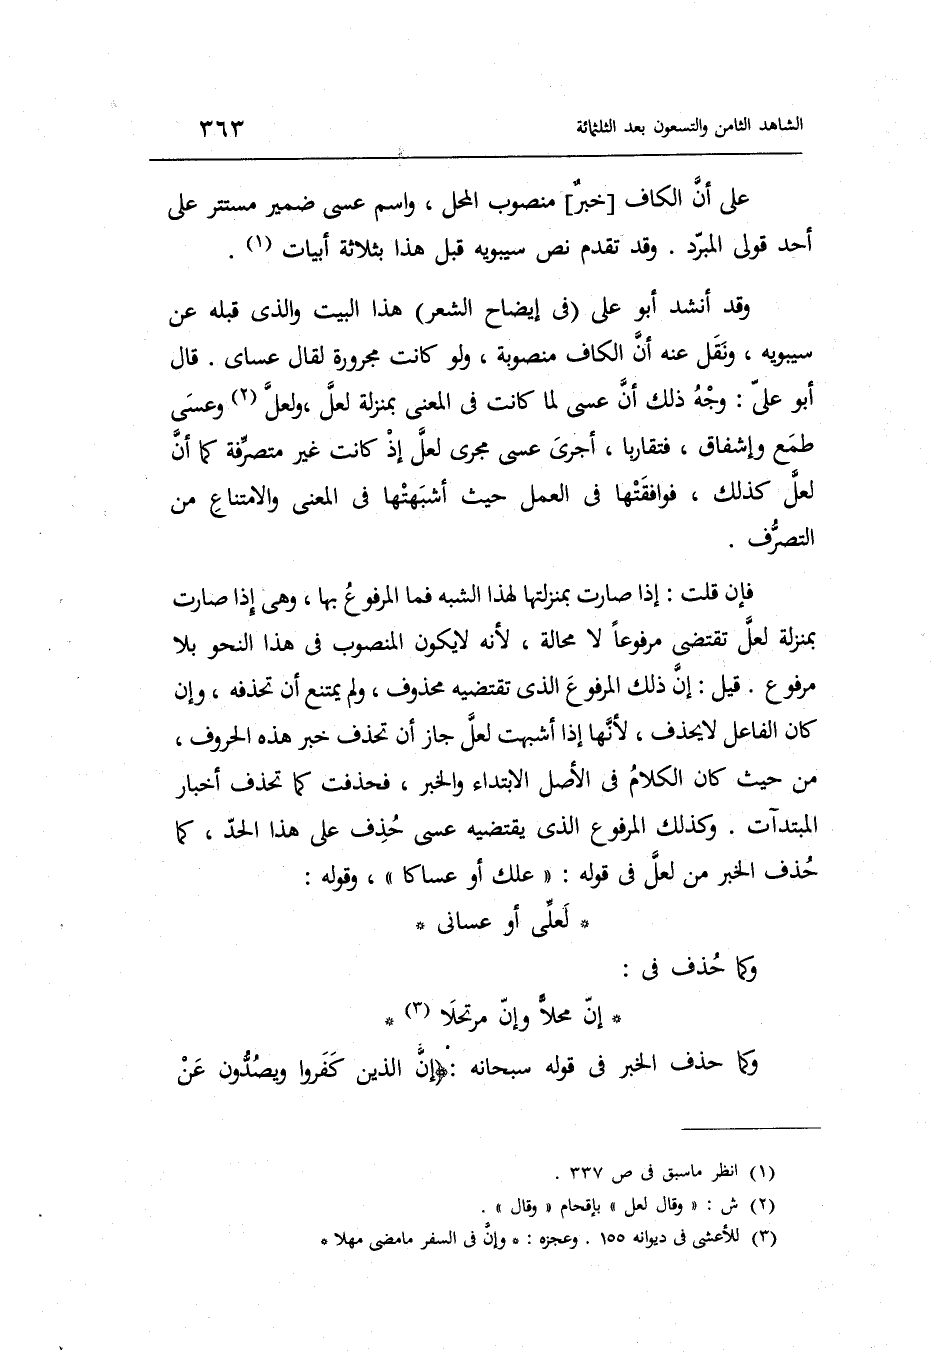 الشاهد الثامن والتسعون بعد الثلثمائة
٣٦٣
على أنَّ الكاف [خبرٌ] منصوب المحل ، واسم عسى ضمير مستتر على
أحد قولى المبرّد . وقد تقدم نص سيبويه قبل هذا بثلاثة أبيات (١) .
وقد أنشد أبو على (فى إيضاح الشعر) هذا البيت والذى قبله عن
سيبويه ، ونَقَل عنه أنَّ الكاف منصوبة ، ولو كانت مجرورة لقال عساى . قال
أبو علىّ : وجْهُ ذلك أنَّ عسى لما كانت فى المعنى بمنزلة لعلَّ ،ولعلَّ (٢) وعسَى
طمَع وإشفاق ، فتقاربا ، أجرىَ عسى مجرى لعلَّ إذْ كانت غير متصرِّفة كما أنَّ
لعلَّ كذلك ، فوافقَتْها فى العمل حيث أشبَهتْها فى المعنى والامتناع من
التصرُّف .
فإن قلت : إذا صارت بمنزلتها لهذا الشبه فما المرفوعُ بها ، وهى إذا صارت
بمنزلة لعلَّ تقتضى مرفوعاً لا محالة ، لأنه لايكون المنصوب فى هذا النحو بلا
مرفوع . قيل : إنَّ ذلك المرفوعَ الذى تقتضيه محذوف ، ولم يمتنع أن تحذفه ، وإن
كان الفاعل لايحذف ، لأنَّها إذا أشبهت لعلَّ جاز أن تحذف خبر هذه الحروف ،
من حيث كان الكلامُ فى الأصل الابتداء والخبر ، فحذفت كما تحذف أخبار
المبتدآت . وكذلك المرفوع الذى يقتضيه عسى حُذِف على هذا الحدّ ، كما
حُذف الخبر من لعلَّ فى قوله : « علك أو عساكا » ، وقوله :
* لَعلِّى أو عسانى *
وكما حُذف فى :
* إنّ محلاًّ وإنّ مرتحلَا (٣) *
وكما حذف الخبر فى قوله سبحانه : ﴿إنَّ الذين كَفَروا ويصُدُّون عَنْ
(١) انظر ماسبق فى ص ٣٣٧ .
(٢) ش : « وقال لعل » بإقحام « وقال » .
(٣) للأعشى فى ديوانه ١٥٥ . وعجزه : * وإنَّ فى السفر مامضى مهلا *